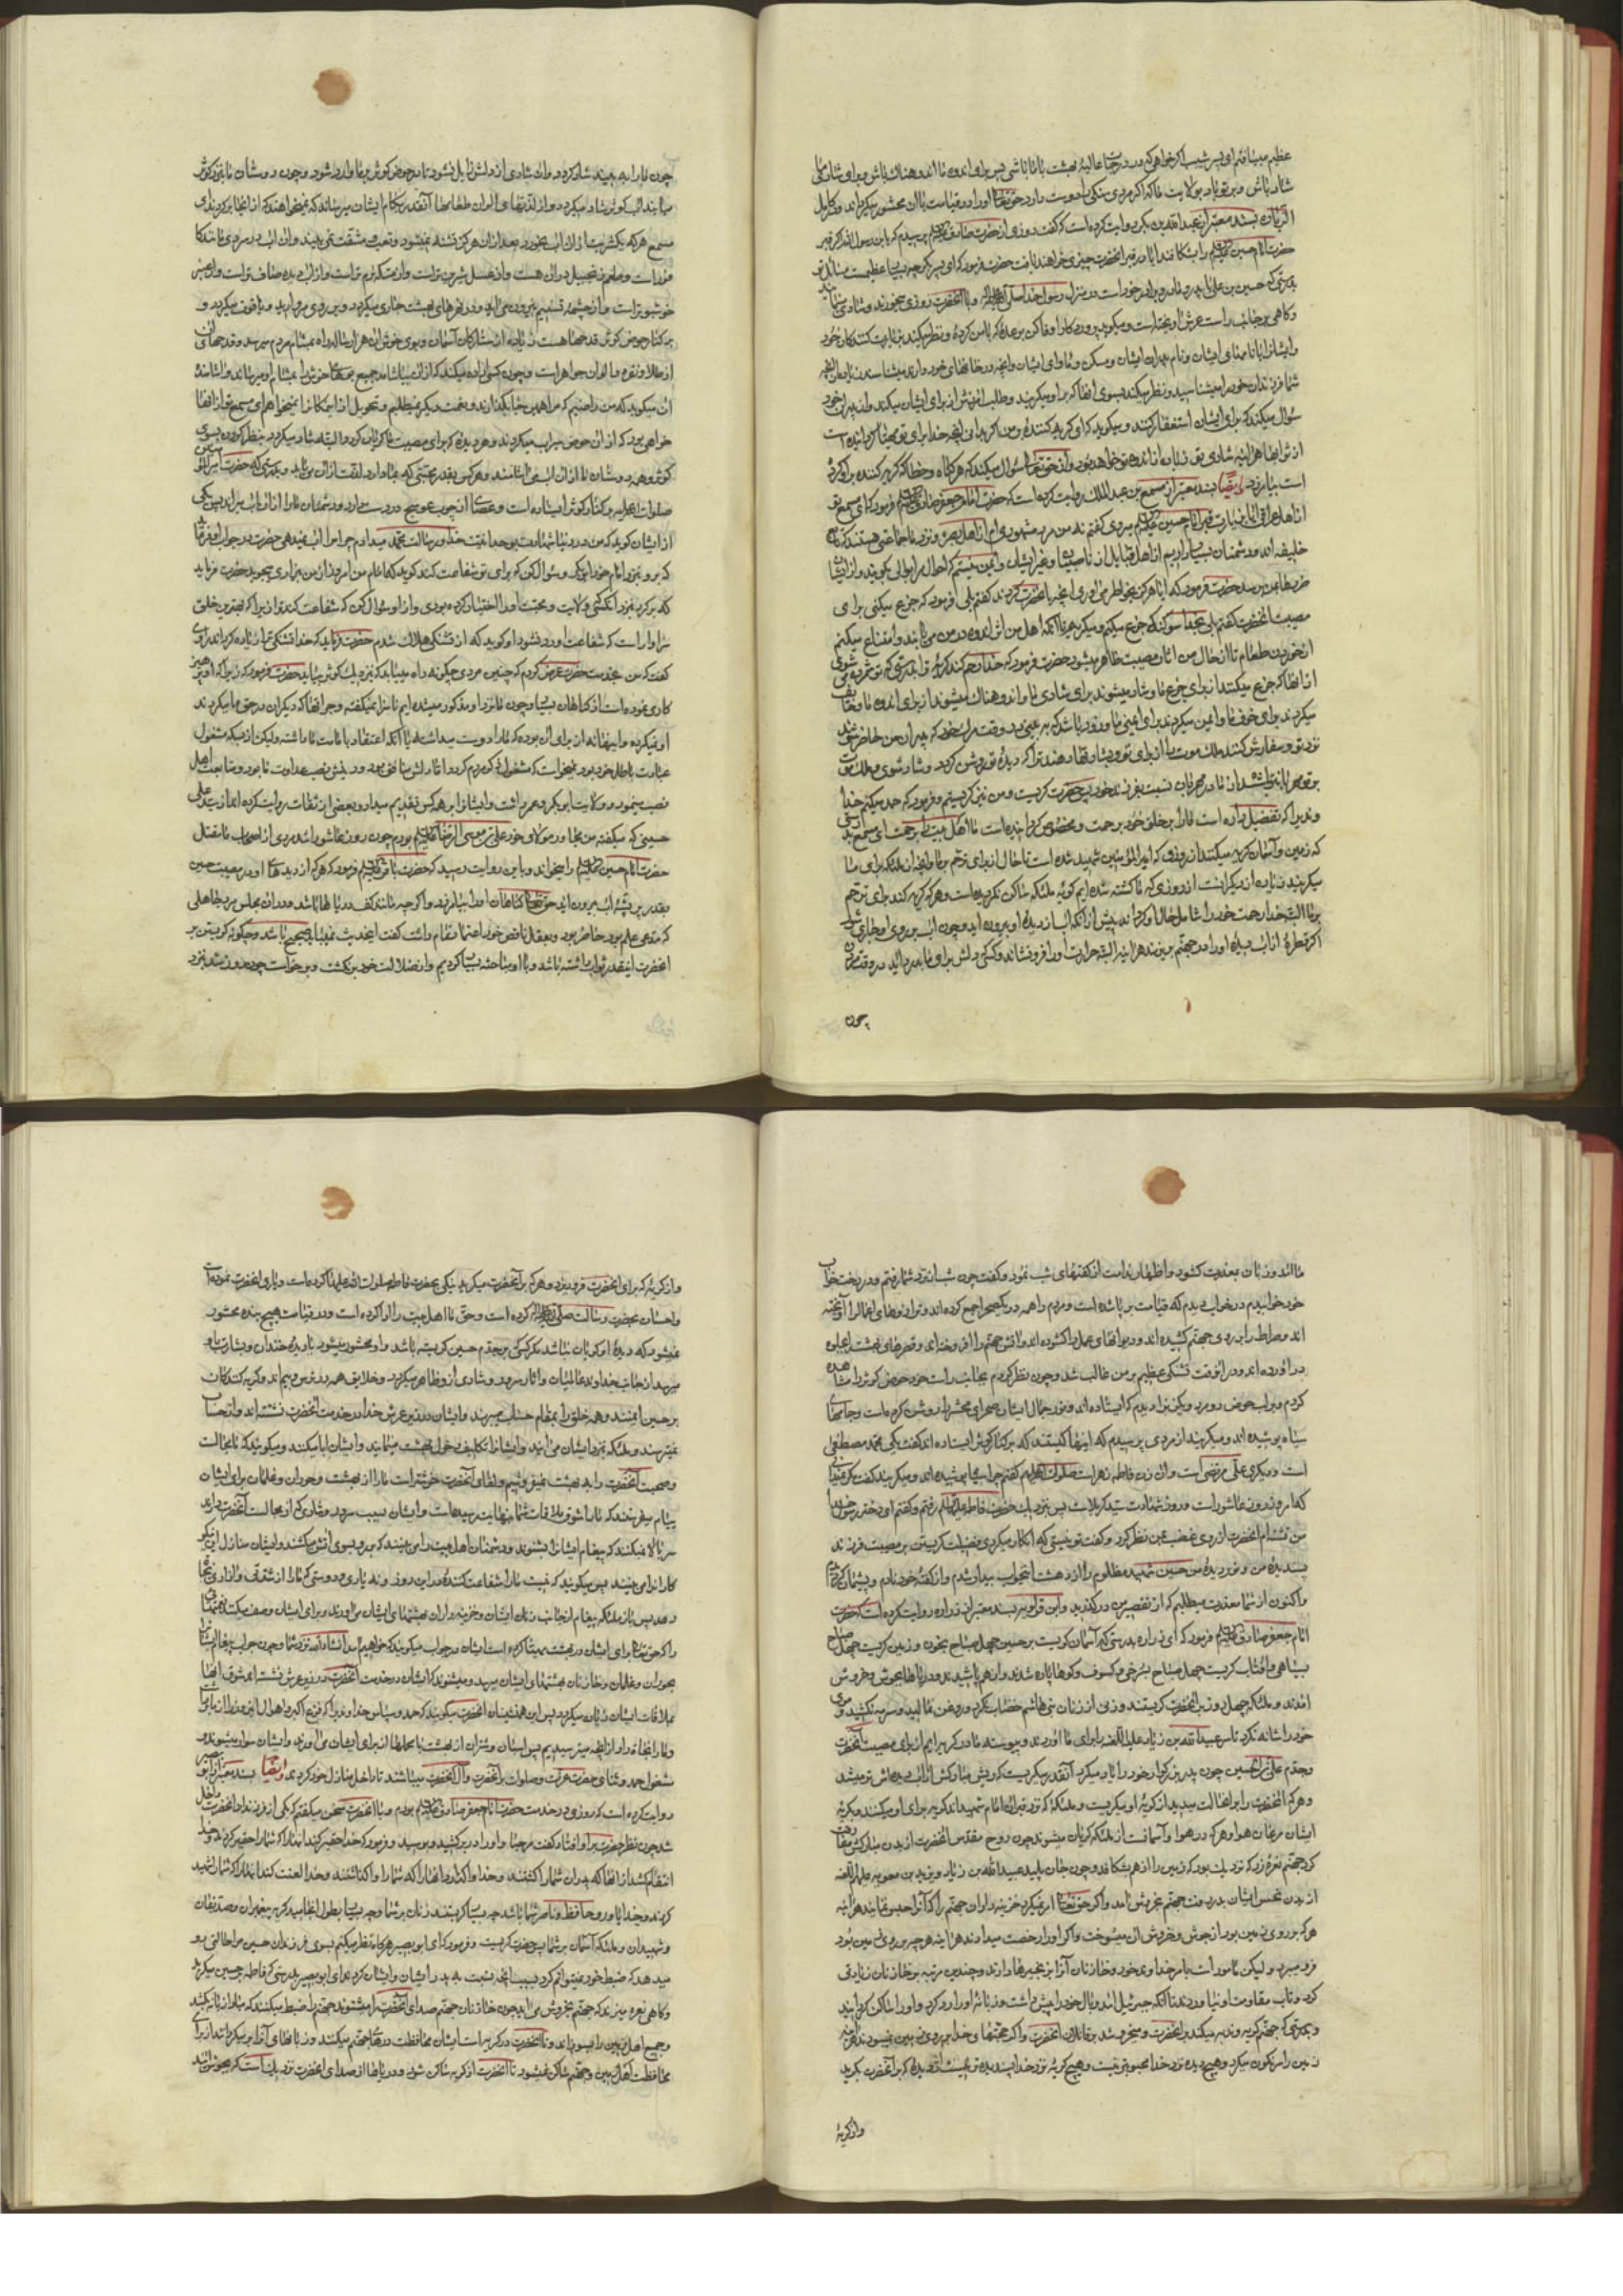 عظیم میبنا فتم ای پسر شبیب اگر خواهی که در درجات عالیهٔ بهشت با ما باشی پس برای اندوه ما اندوهناک باش و برای شادی ما
شاد باش و بر تو باد بولایت ما که اگر مردی سنکی را دوست دارد حق تعالی او را در قیامت با آن محشور میکرداند و در کامل
الزیاره بسند معتبر از عبد الله بن بکر روایت کرده است که گفت روزی از حضرت صادق پرسیدم که یا بن رسول الله اگر قبر
حضرت امام حسین را بشکافند ایا در قبر انحضرت چیزی خواهند یافت حضرت فرمود که ای پسر بکر چه بسیار عظیمست مسائل تو
بدرستی که حسین بن علی با پدر و مادر و برادر خود است در منزل رسول خدا صلی الله علیه و اله و با انحضرت روزی میخورند و شادی مینمایند
و کاهی بر جانب راست عرش اویخته است و میکوید پروردکارا وفا کن بوعدهٔ که با من کردهٔ و نظر میکند بزیارت کنندکان خود
و ایشانرا با نامهای ایشان و نام پدران ایشان و مسکن و ماوای ایشان و انچه در خانهای خود دارند میشناسد زیاده از انچه
شما فرزندان خود را میشناسید و نظر میکند بسوی انها که بر او میکریند و طلب امرزش از برای ایشان میکند و از پدران خود
سؤال میکند که برای ایشان استغفار کنند و میکوید که ای کریه کننده بر من اکر بدانی انچه خدا برای تو مهیا کردانیده است
از ثوابها هراینه شادی تو زیاده از اندوه تو خواهد بود و از حق تعالی سؤال میکند که هر کناه و خطا که کریه کننده بر او کرده
است بیامرزد ایضا بسند معتبر از مسمع بن عبد الملک روایت کرده است که حضرت امام جعفر صادق فرمود که ای مسمع تو
از اهل عراقی ایا بزیارت قبر امام حسین میروی کفتم نه من مرد مشهوری ام از اهل بصره و نزد ما جماعتی هستند که تابع
خلیفه اند و دشمنان بسیار داریم از اهل قبایل از ناصبیان و غیر ایشان و ایمن نیستم که احوال مرا بوالی بکویند و از ایشان
ضررها بمن رسد حضرت فرمود که ایا هرکز بخاطر می اوری انچه با انحضرت کردند کفتم بلی فرمود که جزع میکنی برای
مصیبت انحضرت کفتم بلی بخدا سوکند که جزع میکنم و میکریم تا انکه اهل من اثر اندوه در من می یابند و امتناع میکنم
از خوردن طعام تا از حال من اثار مصیبت ظاهر میشود حضرت فرمود که خدا رحم کند کریهٔ ترا بدرستی که تو شمرده می شوی
از انها که جزع میکنند از برای جزع ما و شاد میشوند برای شادی ما و اندوهناک میشوند از برای اندوه ما و خایف
میکردند برای خوف ما و ایمن میکردند برای ایمنی ما و زود باشد که ببینی در وقت مردن خود که پدران من حاضر شوند
نزد تو و سفارش کنند ملک موت را از برای تو و بشارتها دهند ترا که دیدهٔ تو روشن کردد و شاد شوی و ملک موت
بر تو مهربانتر باشد از مادر مهربان نسبت بفرزند خود پس حضرت کریست و من نیز کریستم و فرمود که حمد میکنم خدا
وندی را که تفضیل داده است ما را بر خلق خود برحمت و مخصوص کردانیده است ما اهل بیت را برحمت ای مسمع بدرستی
که زمین و اسمان کریه میکنند از روزی که امیر المؤمنین شهید شده است تا حال از برای ترحم بر ما و انچه از ملئکه برای ما
میکریند زیاده از دیکرانست از روزی که ما کشته شده ایم کریهٔ ملئکه ساکن نکردیده است و هر که کریه کند برای ترحم
بر ما البته خدا رحمت خود را شامل حال او کرداند پیش از انکه اب از دیدهٔ او بیرون اید و چون اب بر روی او جاری شود
اکر قطرهٔ از اب دیدهٔ او را در جهنم بریزند هراینه البته حرارت او را فرو نشاند و کسی که دلش برای ما بدرد اید در وقت مردن
چون
چون ما را ببیند شاد کردد و ان شادی از دلش زایل نشود تا در حوض کوثر بر ما وارد شود و چون دوستان ما بنزد کوثر
میایند اب کوثر شاد میکردد و از لذتهای الوان طعامها انقدر بکام ایشان میرساند که نمیخواهند که از انجا برکردند ای
مسمع هر که یکشربت از ان اب بخورد بعد از ان هرکز تشنه نمیشود و تعب و مشقت نمی بیند و ان اب در سردی مانند کا
فور است و طعم زنجبیل در ان هست و از عسل شیرین تر است و از مسکه نرم تر است و از اب دیده صاف تر است و از عنبر
خوشبوتر است و از چشمه تسنیم بیرون می اید و در نهرهای بهشت جاری میکردد و بر روی مروارید و یاقوت میکردد و
بر کنار حوض کوثر قدحها هست زیاده از ستارکان اسمان و بوی خوش ان هزار ساله راه بمشام مردم میرسد و قدحهای ان
از طلا و نقره و الوان جواهر است و چون کسی اراده میکند که از ان بیاشامد جمیع بوهای خوش را بمشام او میرساند و اشامنده
ان میکوید که من راضیم که مرا همین جا بکذارند و نعمت دیکر نمیطلبم و تحویل از اینمکان را نمیخواهم ای مسمع تو از انها
خواهی بود که از ان حوض سیراب میکردند و هر دیدهٔ که برای مصیبت ما کریان کردد البته شاد میکردد بنظر کردن بسوی
کوثر و همه دوستان ما از ان اب می اشامند و هرکس بقدر محبتی که بما دارد لذت از ان می یابد و بدرستی که حضرت امیر المؤمنین
صلوات الله علیه بر کنار کوثر ایستاده است و عصائی از چوب عوسج در دست دارد و دشمنان ما را از ان اب میراند پس یکی
از ایشان کوید که من در دنیا شهادت بوحدانیت خدا و رسالت محمد میدادم چرا مرا اب نمیدهی حضرت در جواب او فرماید
که برو بنزد امام خود ابوبکر و سؤال کن که برای تو شفاعت کند کوید که امام من امروز از من بیزاری میجوید حضرت فرماید
که برکرد بنزد انکسی که ولایت و محبت او را اختیار کرده بودی و از او سؤال کن که شفاعت کند ترا زیرا که بهترین خلق
سزاوار است که شفاعت او رد نشود او کوید که از تشنکی هلاک شدم حضرت فرماید که خدا تشنکی ترا زیاده کرداند راوی
کفت که من بخدمت حضرت عرض کردم که چنین مردی چکونه راه مییابد که بنزدیک کوثر بیاید حضرت فرمود که زیرا که او پرهیز
کاری نموده است از کناهان بسیار و چون ما نزد او مذکور میشده ایم ناسزا نمیکفته و جراتها که دیکران در حق ما میکردند
او نمیکرده و اینها نه از برای ان بوده که ما را دوست میداشته یا انکه اعتقاد بامامت ما داشته ولیکن از بسکه مشغول
عبادت باطل خود بود نمیخواست که مشغول ذکر مردم کردد اما دلش منافق بود و دینش نصب عداوت ما بود و متابعت اهل
نصب مینمود و ولایت ابوبکر و عمر داشت و ایشانرا بر همه کس تقدیم میداد و بعضی از ثقات روایت کرده اند از سید علی
حسینی که میکفته من مجاور مولای خود علی بن موسی الرضا بودم چون روز عاشورا شد مردی از اصحاب ما مقتل
حضرت امام حسین را میخواند و باین روایت رسید که حضرت باقر فرمود که هر که از دیدهای او در مصیبت حسین
بقدر پر پشهٔ اب بیرون اید حق تعالی کناهان او را بیامرزد و اکرچه مانند کف دریاها باشد و در ان مجلس مرد جاهلی
که مدعی علم بود حاضر بود و بعقل ناقص خود اعتماد تمام داشت کفت اینحدیث نمیباید صحیح باشد و چکونه کریستن بر
انحضرت اینقدر ثواب داشته باشد و با او مباحثه بسیار کردیم و از ضلالت خود بر نکشت و برخواست چون روز شد بنزد
ما امد و زبان بمعذرت کشود و اظهار ندامت از کفتهای شب نمود و کفت چون شب از نزد شما رفتم و در رخت خواب
خود خوابیدم در خواب دیدم که قیامت بر پا شده است و مردم را همه در یک صحرا جمع کرده اند و ترازوهای اعمال را اویخته
اند و صراط را بر روی جهنم کشیده اند و دیوانهای عمل را کشوده اند و اتش جهنم را افروخته اند و قصرهای بهشت را جلوه
در اورده اند و در انوقت تشنکی عظیم بر من غالب شد و چون نظر کردم بجانب راست خود حوض کوثر را مشاهده
کردم و بر لب حوض دو مرد و یک زن را دیدم که ایستاده اند و نور جمال ایشان صحرای محشر را روشن کرده است و جامهای
سیاه پوشیده اند و میکریند از مردی پرسیدم که اینها کیستند که بر کنار کوثر ایستاده اند کفت یکی محمد مصطفی
است و دیکری علی مرتضی است و ان زن فاطمه زهرا است صلوات الله علیهم کفتم چرا سیاه پوشیده اند و میکریند کفت مکر نمیدانی
که امروز روز عاشورا است و روز شهادت سید کربلا است پس بنزدیک حضرت فاطمه رفتم و کفتم ای دختر رسول خدا
من تشنه ام انحضرت از روی غضب بمن نظر کرد و کفت تو نیستی که انکار میکردی فضیلت کریستن بر مصیبت فرزند
پسندیدهٔ من و نور دیدهٔ من حسین شهید مظلوم را از دهشت اینخواب بیدار شدم و از کفتهٔ خود نادم و پشیمان کردیدم
و اکنون از شما معذرت میطلبم که از تقصیر من درکذرید و ابن قولویه بسند معتبر از زراره روایت کرده است که حضرت
امام جعفر صادق فرمود که ای زراره بدرستی که اسمان کریست بر حسین چهل صباح بخون و زمین کریست چهل صباح
بسیاهی و افتاب کریست چهل صباح بسرخی و کسوف و کوهها پاره شدند و از هم پاشیدند و دریاها بجوش و خروش
امدند و ملئکه چهل روز بر انحضرت کریستند و زنی از زنان بنی هاشم خضاب نکرد و روغن نمالید و سرمه نکشید و موی
خود را شانه نکرد تا سر عبید الله بن زیاد علیه اللعنه را برای ما اوردند و پیوسته ما در کریه ایم از برای مصیبت انحضرت
و جدم علی بن الحسین چون پدر بزرکوار خود را یاد میکرد انقدر میکریست که ریش مبارکش از اب دیده اش تر میشد
و هر که انحضرت را بر انحالت میدید از کریهٔ او میکریست و ملئکه که نزد قبر ان امام شهیدند کریه برای او میکنند و بکریهٔ
ایشان مرغان هوا و هر که در هوا و اسمانست از ملئکه کریان میشوند چون روح مقدس انحضرت از بدن مبارکش مفارقت
کرد جهنم نعرهٔ زد که نزدیک بود که زمین را از هم بشکافد و چون جان پلید عبید الله بن زیاد و یزید بن معویه علیهم اللعنه
از بدن نحس ایشان بدر رفت جهنم بخروش امد و اکر حق تعالی امر نمیکرد خزینه داران جهنم را که انرا حبس نمایند هراینه
هر که بر روی زمین بود از جوش و خروش ان میسوخت و اکر او را رخصت میدادند هراینه هر چه بر روی زمین بود
فرو میبرد ولیکن مامور است بامر خداوند خود و خازنان انرا بزنجیرها دارند و چندین مرتبه بر خازنان زیادتی
کرد و تاب مقاومت او نیاوردند تا انکه جبرئیل امد و بال خود را پیش داشت و زبانهٔ او را رد کرد و او را ساکن کردانید
و بدرستی که جهنم کریه و ندبه میکند بر انحضرت و میخروشد بر قاتلان انحضرت و اکر حجتهای خدا بر روی زمین نمیبودند هراینه
زمین را سرنکون میکرد و هیچ دیده نزد خدا محبوبتر نیست و هیچ کریهٔ نزد خدا پسندیده تر نیست از دیدهٔ که بر انحضرت بکرید
و از کریهٔ
و از کریهٔ که برای انحضرت فرو ریزد و هر که بر انحضرت میکرید نیکی بحضرت فاطمه صلوات الله علیها کرده است و یاری انحضرت نموده است
و احسان بحضرت رسالت صلی الله علیه و اله کرده است و حق ما اهل بیت را ادا کرده است و در قیامت هیچ بنده محشور
نمیشود که دیدهٔ او کریان نباشد مکر کسی که بر جدم حسین کریسته باشد و او محشور میشود با دیدهٔ خندان و بشارت باو
میرسد از جانب خداوند عالمیان و اثار سرور و شادی از او ظاهر میکردد و خلایق همه در ترس و بیم اند و کریه کنندکان
بر حسین ایمنند و همه خلق را بمقام حساب میبرند و ایشان در زیر عرش خدا در خدمت انحضرت نشسته اند و از حساب
نمیترسند و ملئکه بنزد ایشان می ایند و ایشانرا تکلیف دخول بهشت مینمایند و ایشان ابا میکنند و میکویند که ما مجالست
و صحبت انحضرت را به بهشت نمیفروشیم و لقای انحضرت خوشتر است ما را از بهشت و حوران و غلمان برای ایشان
پیغام میفرستند که ما را شوق ملاقات شما بنهایت رسیده است و ایشان بسبب سرور و شادی که از مجالست انحضرت دارند
سر بالا نمیکنند که پیغام ایشانرا بشنوند و دشمنان اهل بیت را می بینند که بر رو بسوی اتش میکشند و ایشان منازل ان نیکو
کارانرا می بینند پس میکویند که نیست ما را شفاعت کنندهٔ در این روز و نه یاری و دوستی که ما را از شفقت و ازاری نجات
دهد پس باز ملئکه پیغام از جانب زنان ایشان و خزینه داران بهشتهای ایشان می اورند و برای ایشان وصف میکنند نعمتها
را که حق تعالی برای ایشان در بهشت مهیا کرده است ایشان در جواب میکویند که خواهیم امد انشاء الله نزد شما و چون جواب پیغام ایشان
بحوران و غلمان و خازنان بهشتهای ایشان میرسد و میشنوند که ایشان در خدمت انحضرت در زیر عرش نشسته اند شوق انها
بملاقات ایشان زیاده میکردد پس این همنشینان انحضرت میکویند که حمد و سپاس خداوندی را که فزع اکبر و اهوال این روز را از ما برداشت
و ما را نجات داد از انچه میترسیدیم پس اسبان و شتران از بهشت با محملها از برای ایشان می اورند و ایشان سوار میشوند و
مشغول حمد و ثنای حضرت عزت و صلوات بر انحضرت و ال انحضرت میباشند تا داخل منازل خود کردند ایضا بسند معتبر از ابو بصیر
روایت کرده است که روزی در خدمت حضرت امام جعفر صادق بودم و با انحضرت سخن میکفتم که یکی از فرزندان انحضرت داخل
شد چون نظر حضرت بر او افتاد کفت مرحبا و او را در بر کشید و بوسید و فرمود که خدا حقیر کند انها را که شما را حقیر کردند و خدا
انتقام کشد از انها که پدران شما را کشتند و خدا واکذارد انها را که شما را واکذاشتند و خدا لعنت کند انها را که شما را شهید
کردند و خدا یاور و حافظ و ناصر شما باشد چه بسیار کریستند زنان بر شما و چه بسیار بطول انجامید کریه پیغمبران و صدیقان
و شهیدان و ملئکه اسمان بر شما پس حضرت کریست و فرمود که ای ابو بصیر هرکاه نظر میکنم بسوی فرزندان حسین مرا حالتی رو
میدهد که ضبط خود نمیتوانم کرد بسبب انچه نسبت به پدر ایشان و ایشان کردند ای ابو بصیر بدرستی که فاطمه بر حسین میکرید
و کاهی نعره میزند که جهنم بخروش می اید چون خازنان جهنم صدای انحضرت را میشنوند جهنم را ضبط میکنند که مبادا زبانه بکشد
و جمیع اهل زمین را بسوزاند و تا انحضرت در کریه است ایشان محافظت درهای جهنم میکنند و زبانهای انرا بر میکردانند از برای
محافظت اهل زمین و جهنم ساکن نمیشود تا انحضرت از کریه ساکن شود و دریاها از صدای انحضرت نزدیک است که بجوش ایند